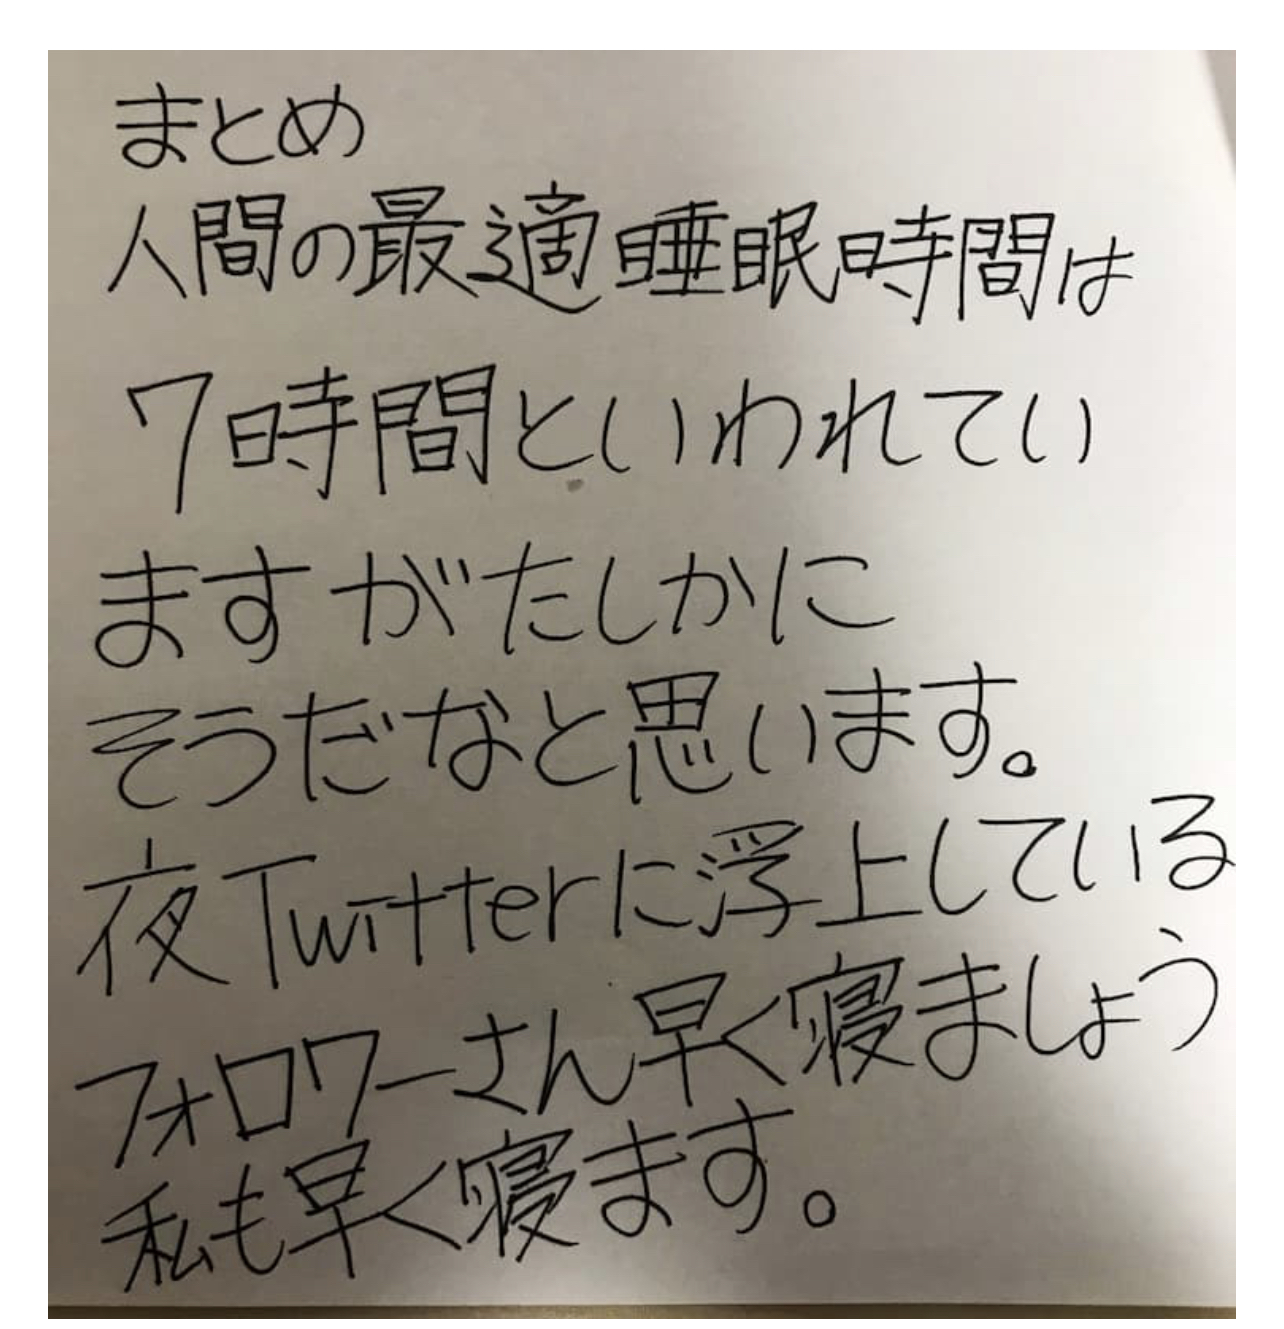 まとめ
人間の最適睡眠時間は
7時間といわれてい
ますがたしかに
そうだなと思います。
夜Twitterに浮上している
フォロワーさん早く寝ましょう
私も早く寝ます。